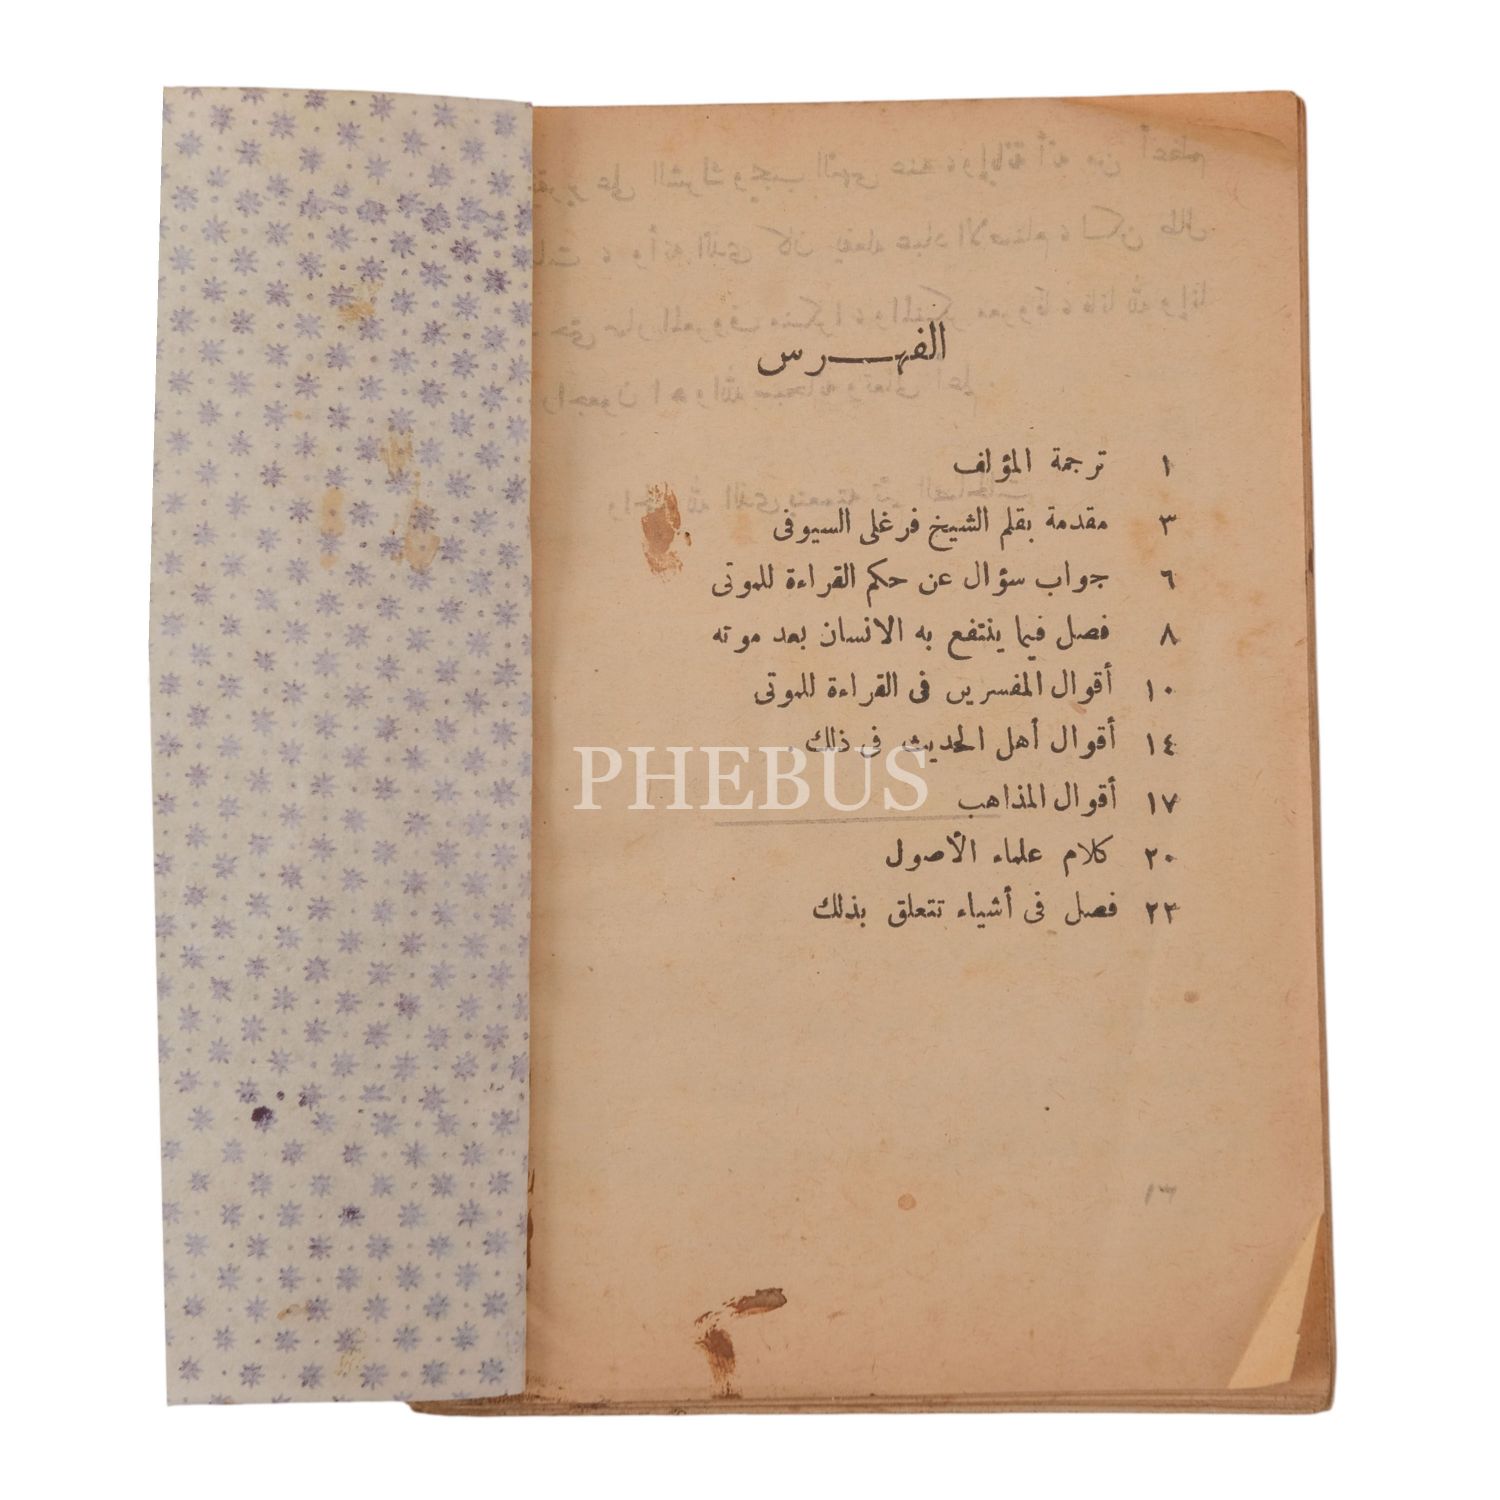 الفهرس
١ ترجمة المؤلف
٣ مقدمة بقلم الشيخ فرغلى السيوفى
٦ جواب سؤال عن حكم القراءة للموتى
٨ فصل فيما ينتفع به الانسان بعد موته
١٠ أقوال المفسرين فى القراءة للموتى
١٤ أقوال أهل الحديث فى ذلك .
PHEBUS
١٧ أقوال المذاهب
٢٠ كلام علماء الأصول
٢٣ فصل فى أشياء تتعلق بذلك